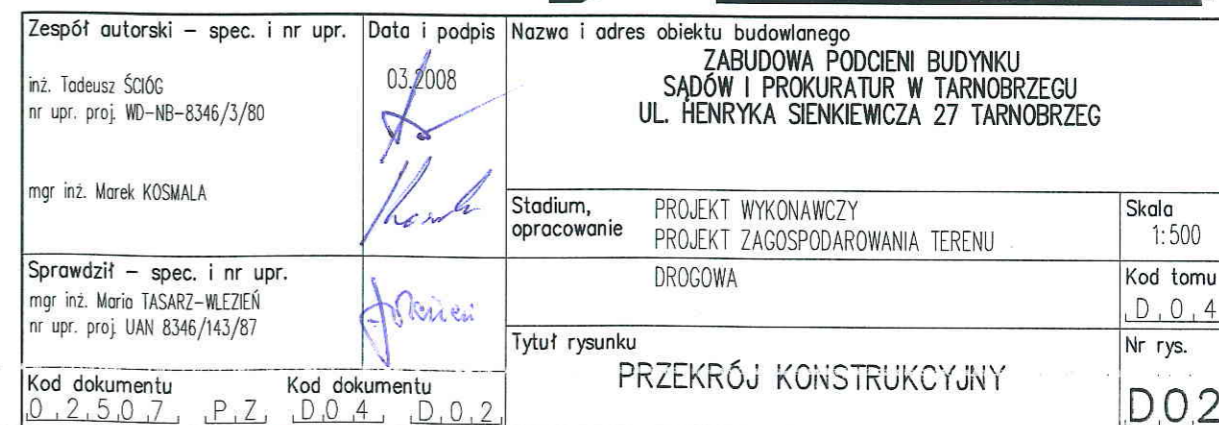 Zespół autorski – spec. i nr upr.
Data i podpis
inż. Tadeusz ŚCIÓG
nr upr. proj. WD-NB-8346/3/80
03.2008
mgr inż. Marek KOSMALA
Sprawdził – spec. i nr upr.
mgr inż. Maria TASARZ-WLEZIEŃ
nr upr. proj. UAN 8346/143/87
Kod dokumentu Kod dokumentu
0,2,5,0,7, ,P,Z, ,D,0,4, ,D,0,2,
Nazwa i adres obiektu budowlanego
ZABUDOWA PODCIENI BUDYNKU
SĄDÓW I PROKURATUR W TARNOBRZEGU
UL. HENRYKA SIENKIEWICZA 27 TARNOBRZEG
Stadium,
opracowanie
PROJEKT WYKONAWCZY
PROJEKT ZAGOSPODAROWANIA TERENU
Skala
1:500
DROGOWA
Kod tomu
,D,0,4
Tytuł rysunku
PRZEKRÓJ KONSTRUKCYJNY
Nr rys.
D02